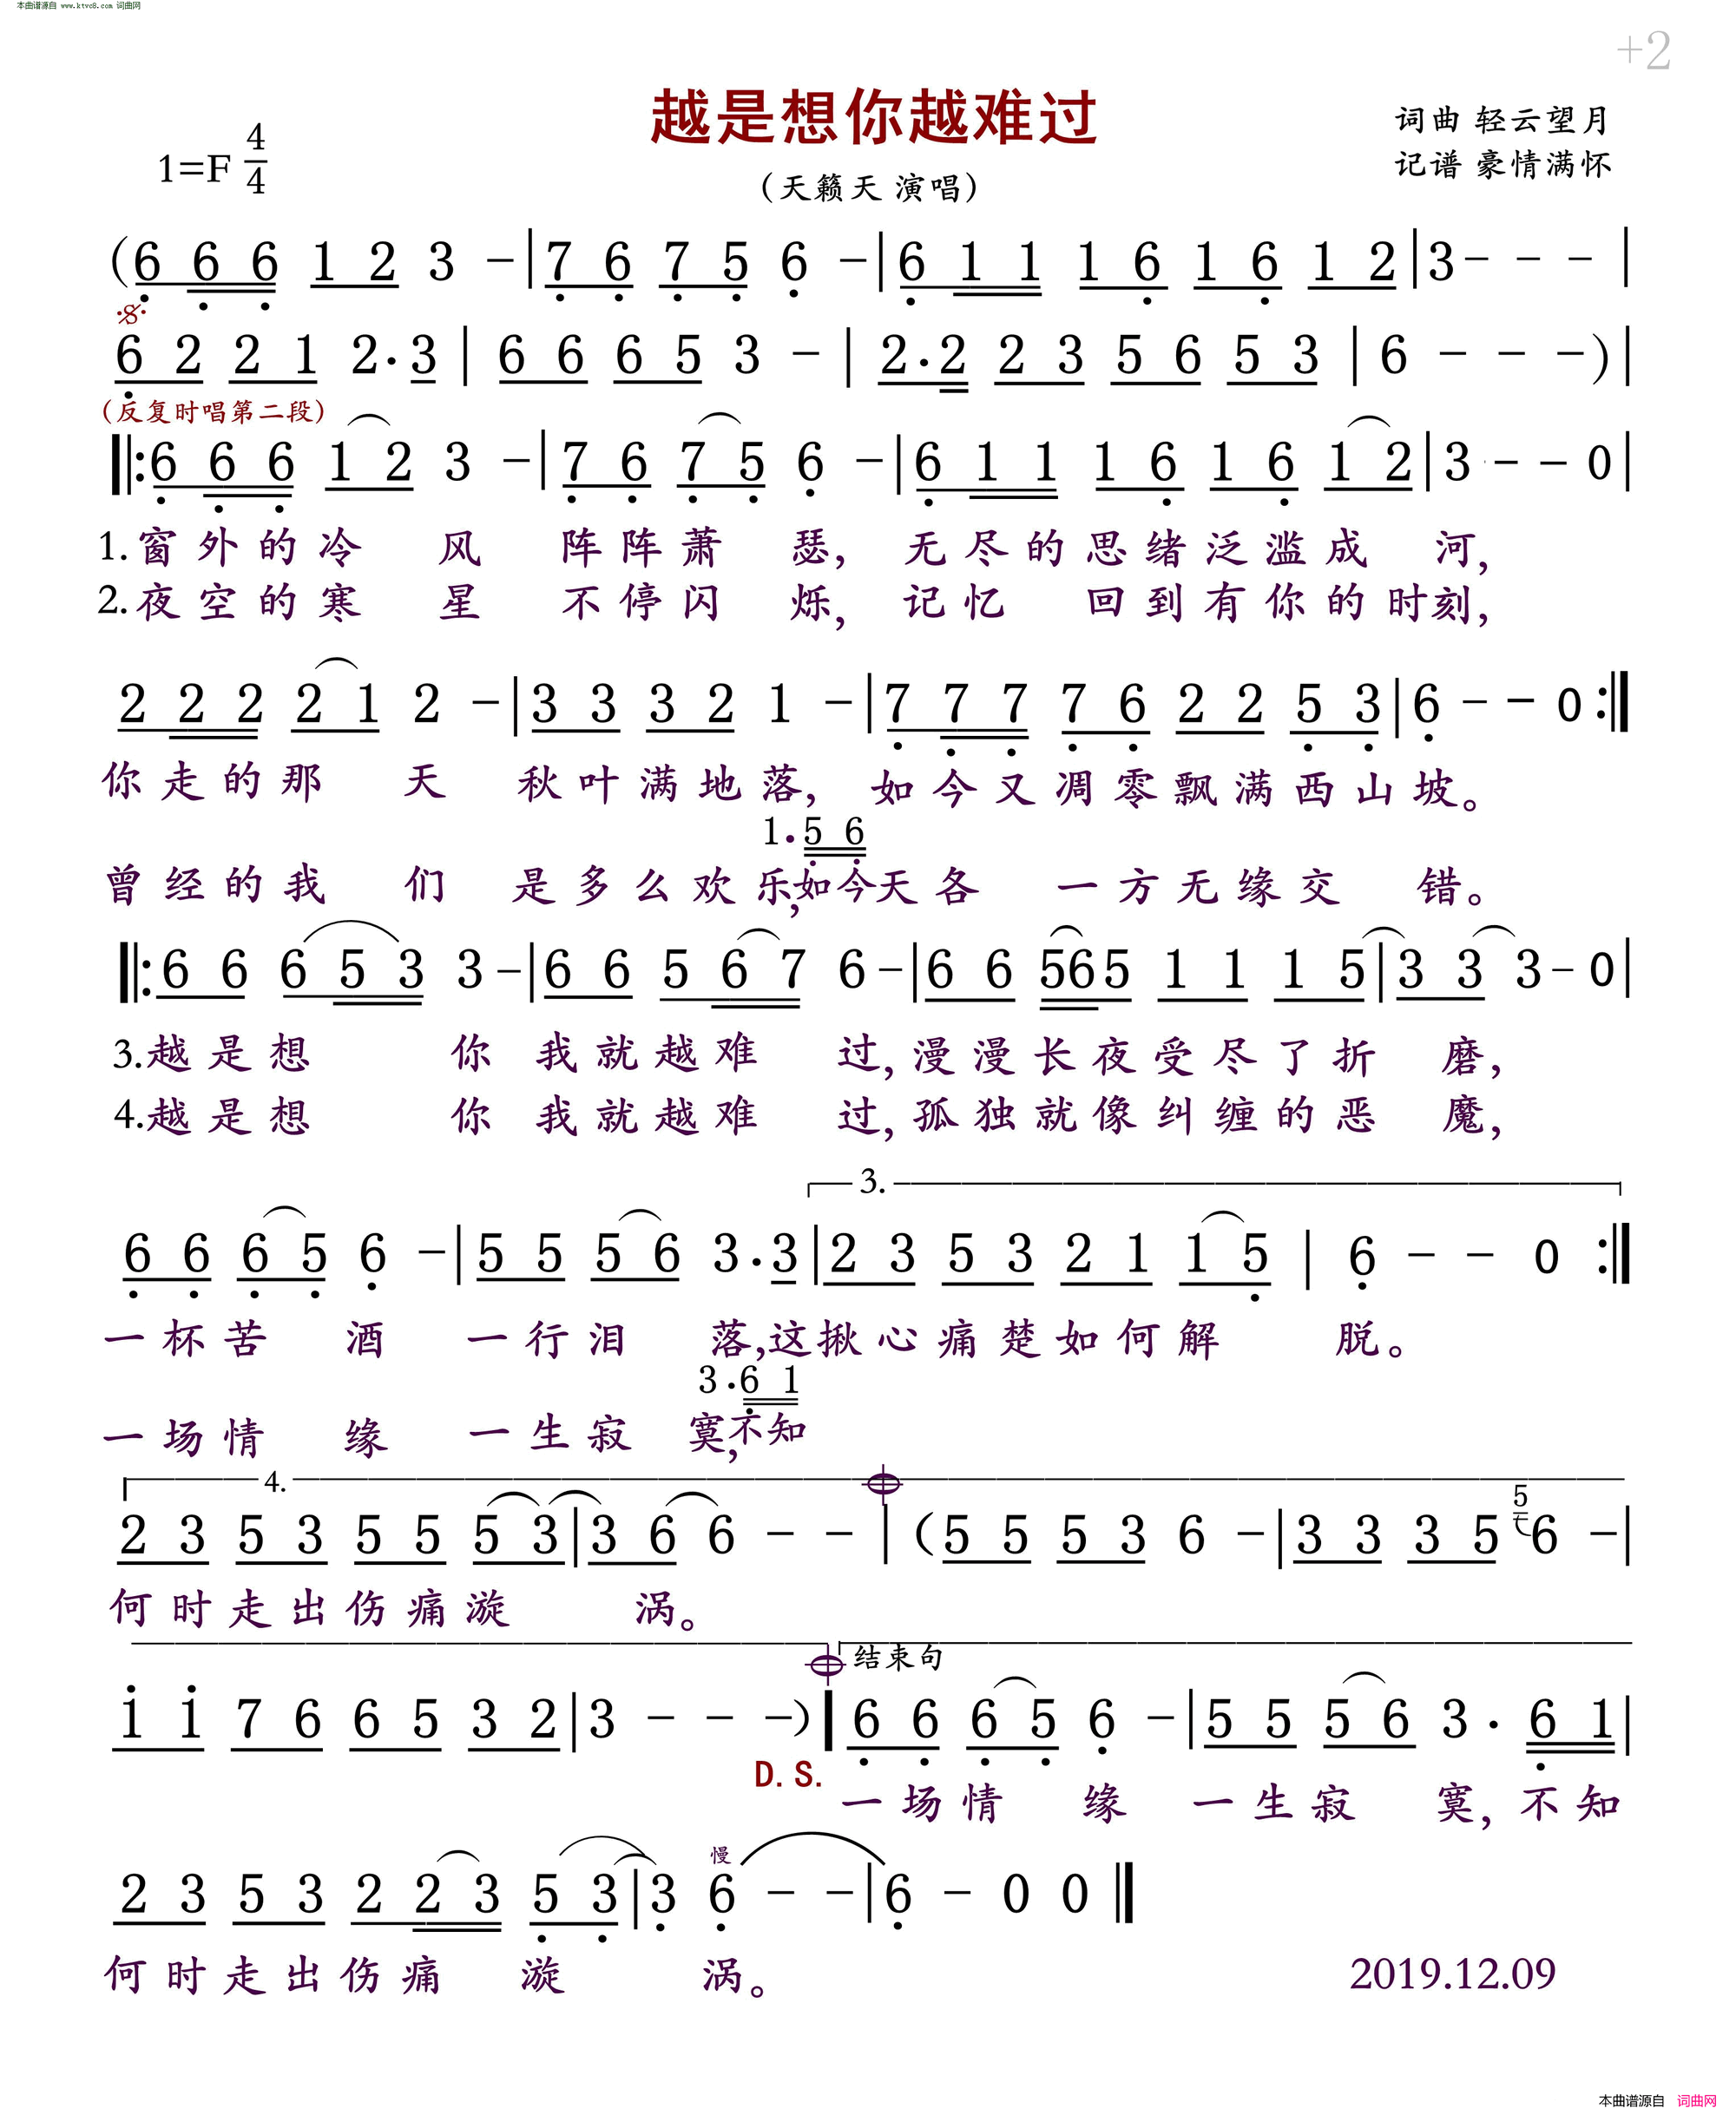 本曲谱源自 www.ktvc8.com 词曲网
+2
越是想你越难过
词曲 轻云望月
1=F 4/4
记谱 豪情满怀
（天籁天 演唱）
(6 6 6 1 2 3 －|7 6 7 5 6 －|6 1 1 1 6 1 6 1 2|3－ － － |
6 2 2 1 2·3 | 6 6 6 5 3 － | 2·2 2 3 5 6 5 3 | 6 － － －)|
（反复时唱第二段）
‖:6 6 6 1 2 3 －|7 6 7 5 6 －|6 1 1 1 6 1 6 1 2|3 － － 0|
1.窗外的冷 风 阵阵萧 瑟, 无尽的思绪泛滥成 河,
2.夜空的寒 星 不停闪 烁, 记忆 回到有你的时刻,
2 2 2 2 1 2 －|3 3 3 2 1 －|7 7 7 7 6 2 2 5 3|6 － － 0:‖
你走的那 天 秋叶满地落, 如今又凋零飘满西山坡。
1·5 6
曾经的我 们 是多么欢乐,如今天各 一方无缘交 错。
‖:6 6 6 5 3 3－|6 6 5 6 7 6－|6 6 565 1 1 1 5|3 3 3－0|
3.越是想 你 我就越难 过,漫漫长夜受尽了折 磨,
4.越是想 你 我就越难 过,孤独就像纠缠的恶 魔,
3.
6 6 6 5 6 －|5 5 5 6 3·3|2 3 5 3 2 1 1 5 | 6 － － 0 :‖
一杯苦 酒 一行泪 落,这揪心痛楚如何解 脱。
3·6 1
一场情 缘 一生寂 寞,不知
4.
2 3 5 3 5 5 5 3|3 6 6 － － | (5 5 5 3 6 －|3 3 3 5 5 6 －|
何时走出伤痛漩 涡。
结束句
1 1 7 6 6 5 3 2|3 － － －)|6 6 6 5 6 －|5 5 5 6 3 · 6 1|
D.S.
一场情 缘 一生寂 寞, 不知
慢
2 3 5 3 2 2 3 5 3|3 6 － －|6 － 0 0 ‖
何时走出伤痛 漩 涡。
2019.12.09
本曲谱源自 词曲网